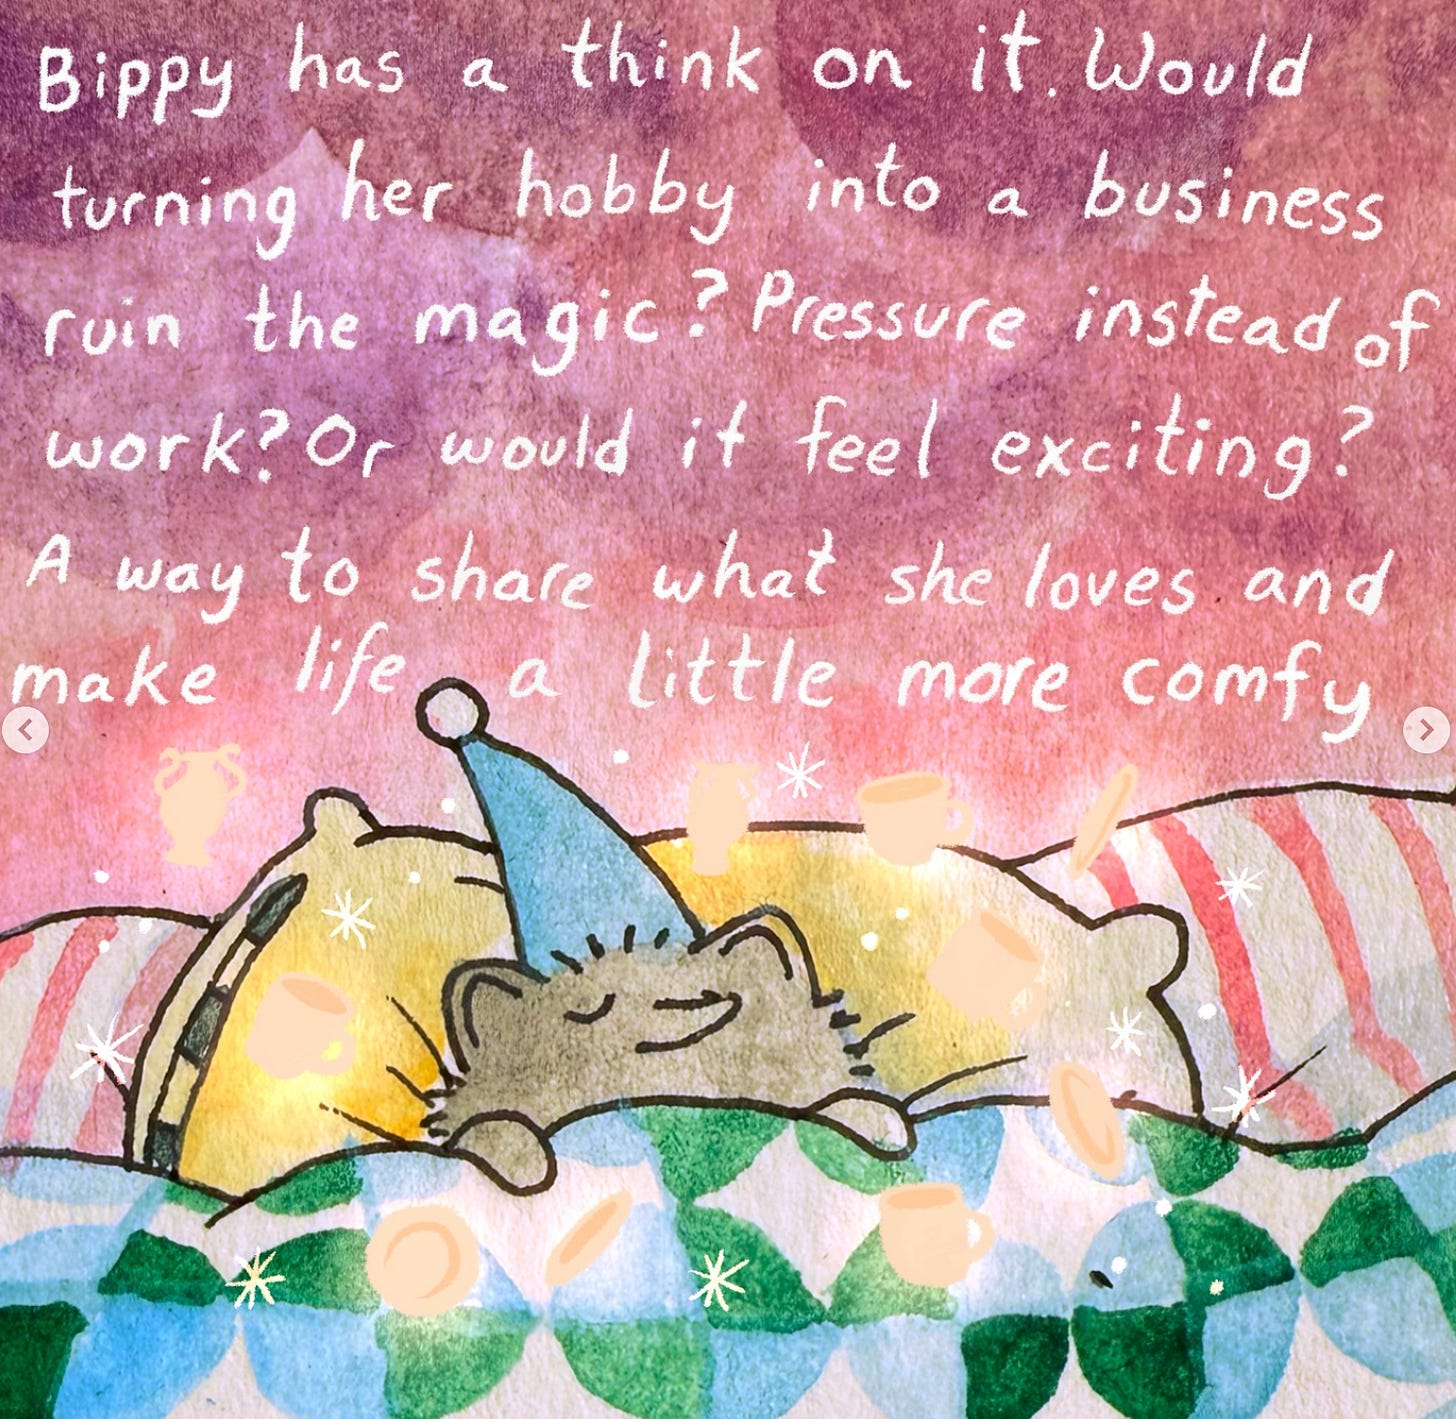 Bippy has a think on it. Would
turning her hobby into a business
ruin the magic? Pressure instead of
work? Or would it feel exciting?
A way to share what she loves and
make life a little more comfy